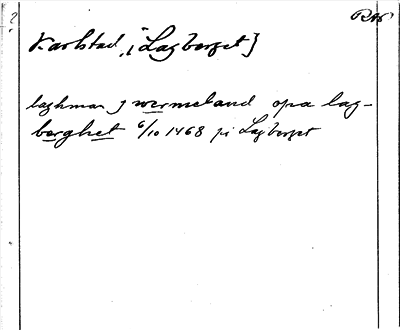 RAP
Karlstad, [Lagberget]
laghman j wermeland opa lag-
berghet 6/10 1468 på Lagberget